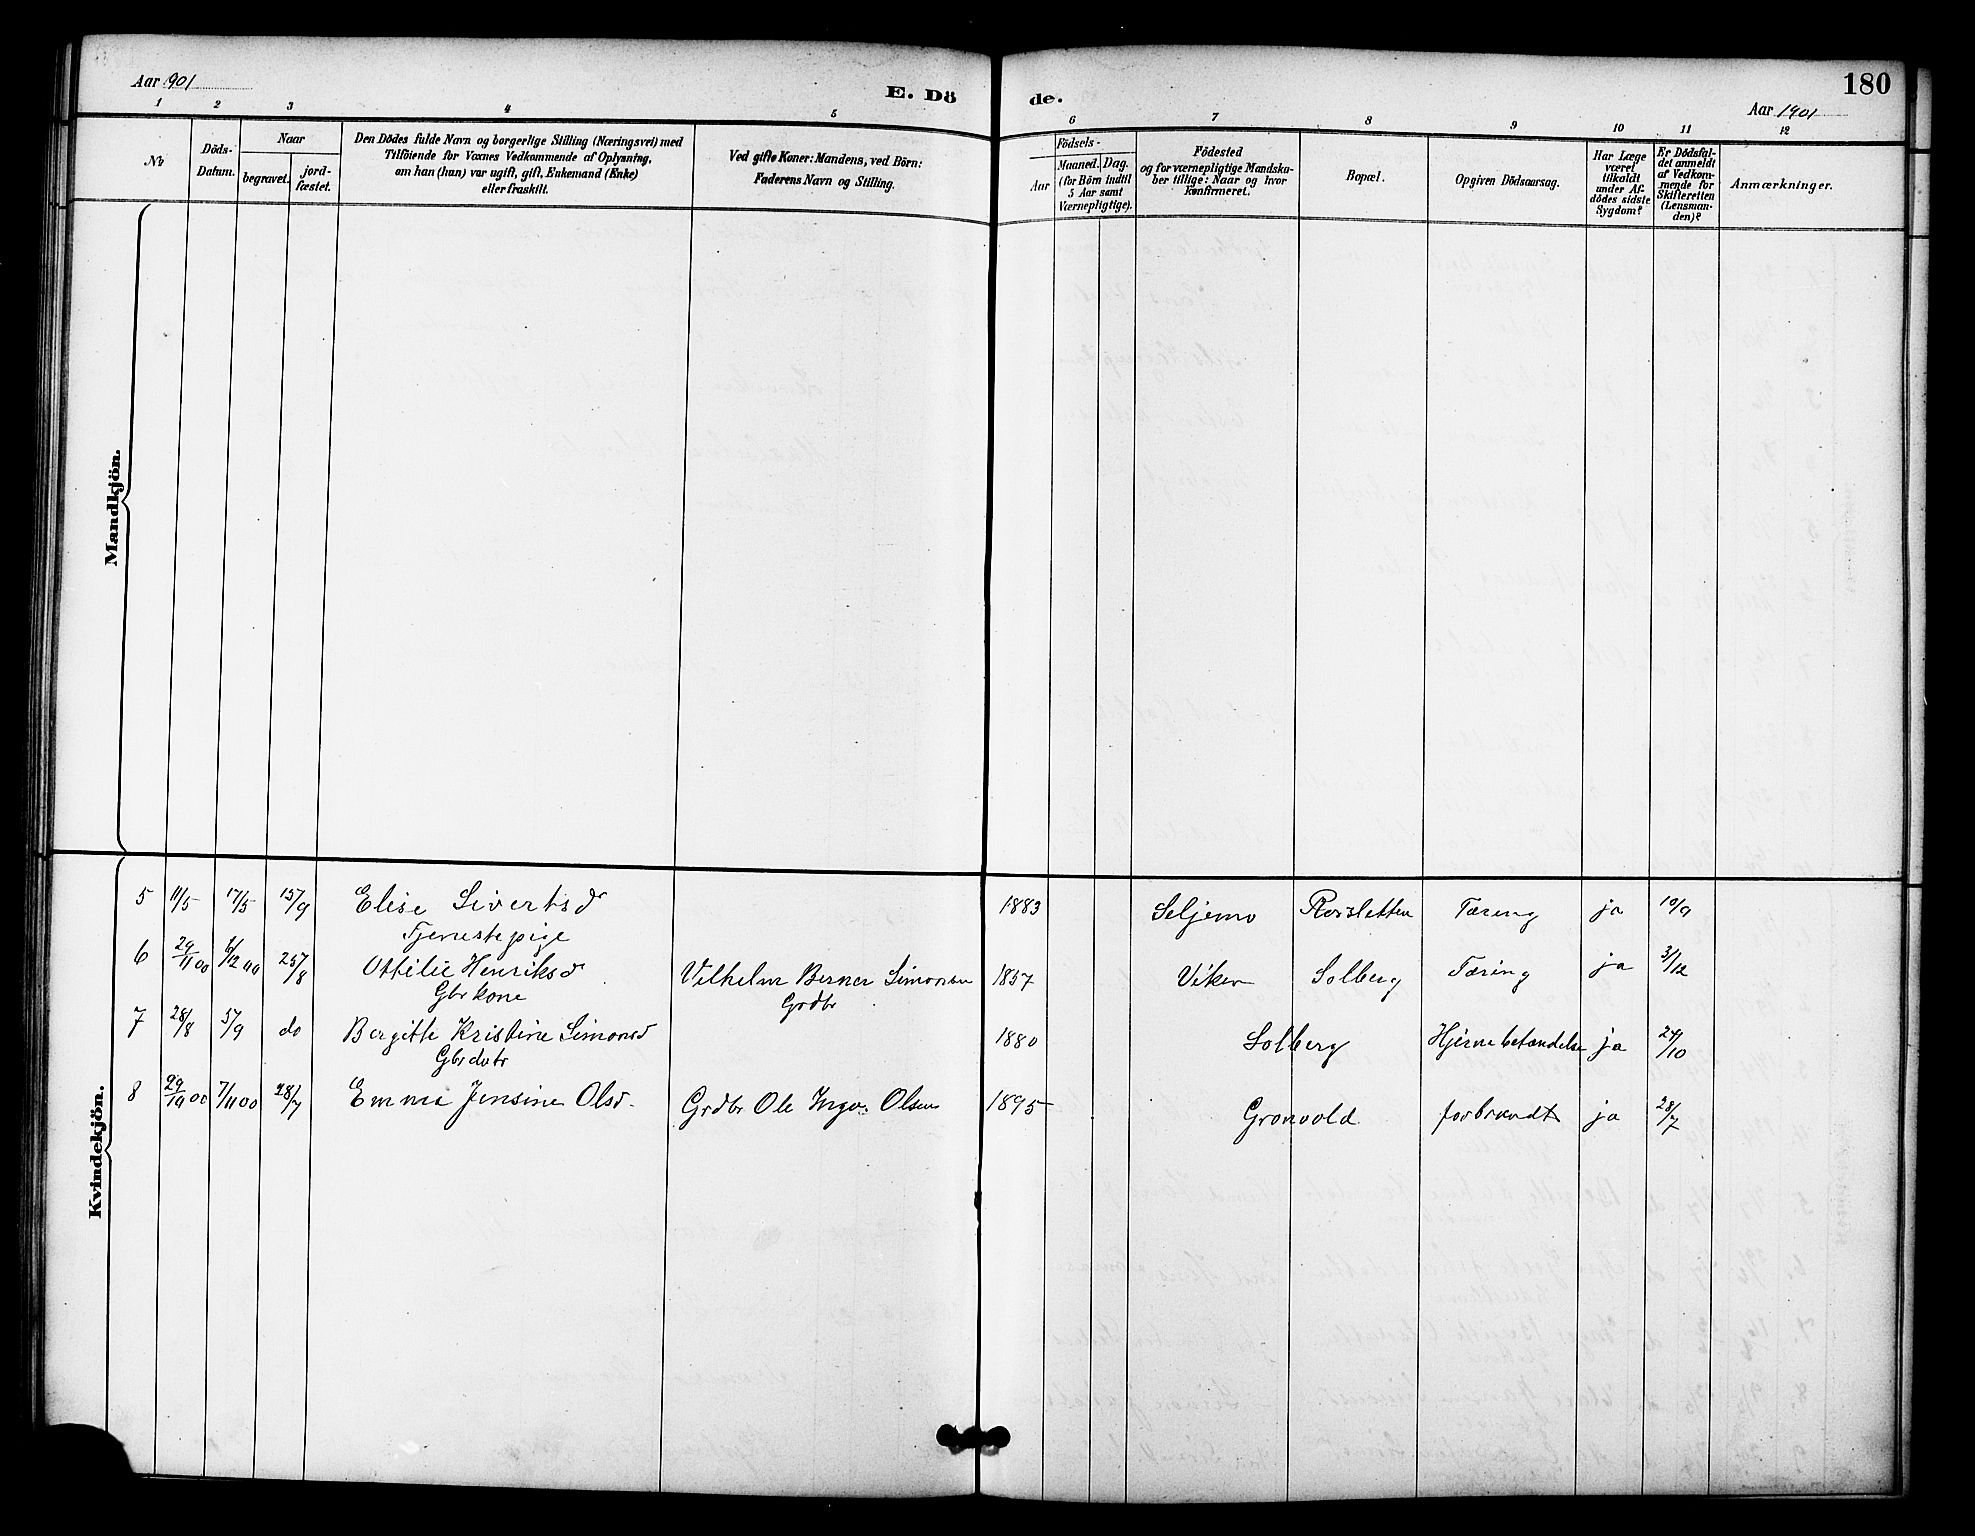 Aar 1901
E. Dö
de.
180
Aar 1901
1 2 3 4 5 6 7 8 9 10 11 12
No
Döds-
Datum.
Naar
begravet.
jord-
fæstet.
Den Dödes fulde Navn og borgerlige Stilling (Næringsvei) med
Tilföiende for Voxnes Vedkommende af Oplysning,
om han (hun) var ugift, gift, Enkemand (Enke)
eller fraskilt.
Ved gifte Koner: Mandens, ved Börn:
Faderens Navn og Stilling.
Födsels-
Aar
Maaned. Dag.
(for Börn indtil
5 Aar samt
Værnepligtige).
Födested
og for værnepligtige Mandska-
ber tillige: Naar og hvor
konfirmeret.
Bopæl.
Opgiven Dödsaarsag.
Har Læge
været
tilkaldt
under Af-
dödes sidste
Sygdom?
Er Dödsfal-
det anmeldt
af Vedkom-
mende for
Skifteretten
(Lensman-
den)?
Anmærkninger.
Mandkjön.
Kvindekjön.
5 11/5 17/5 15/9 Elise Sivertsd 1883 Seljemo Rossletten Tæring ja 10/9
Tjenestepige
6 29/11 00 6/12 00 25/8 Ottilie Henriksd Vilhelm Berner Simonsen 1857 Viken Solberg Tæring ja 3/12
Gbrkone Grdbr
7 28/8 5/9 do Bergitte Kristine Simonsd 1880 Solberg Hjernebetændelse ja 24/10
Gbrdatr
8 29/10 00 7/11 00 28/7 Emma Jensine Olsd. Grdbr Ole Ingv. Olsen 1895 Gronvold forbrændt ja 28/7